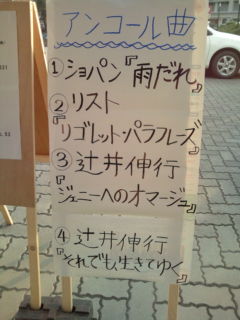 アンコール曲
①ショパン『雨だれ』
②リスト
『リゴレット・パラフレーズ』
③辻井伸行
『ジェニーへのオマージュ』
④辻井伸行
『それでも、生きてゆく』